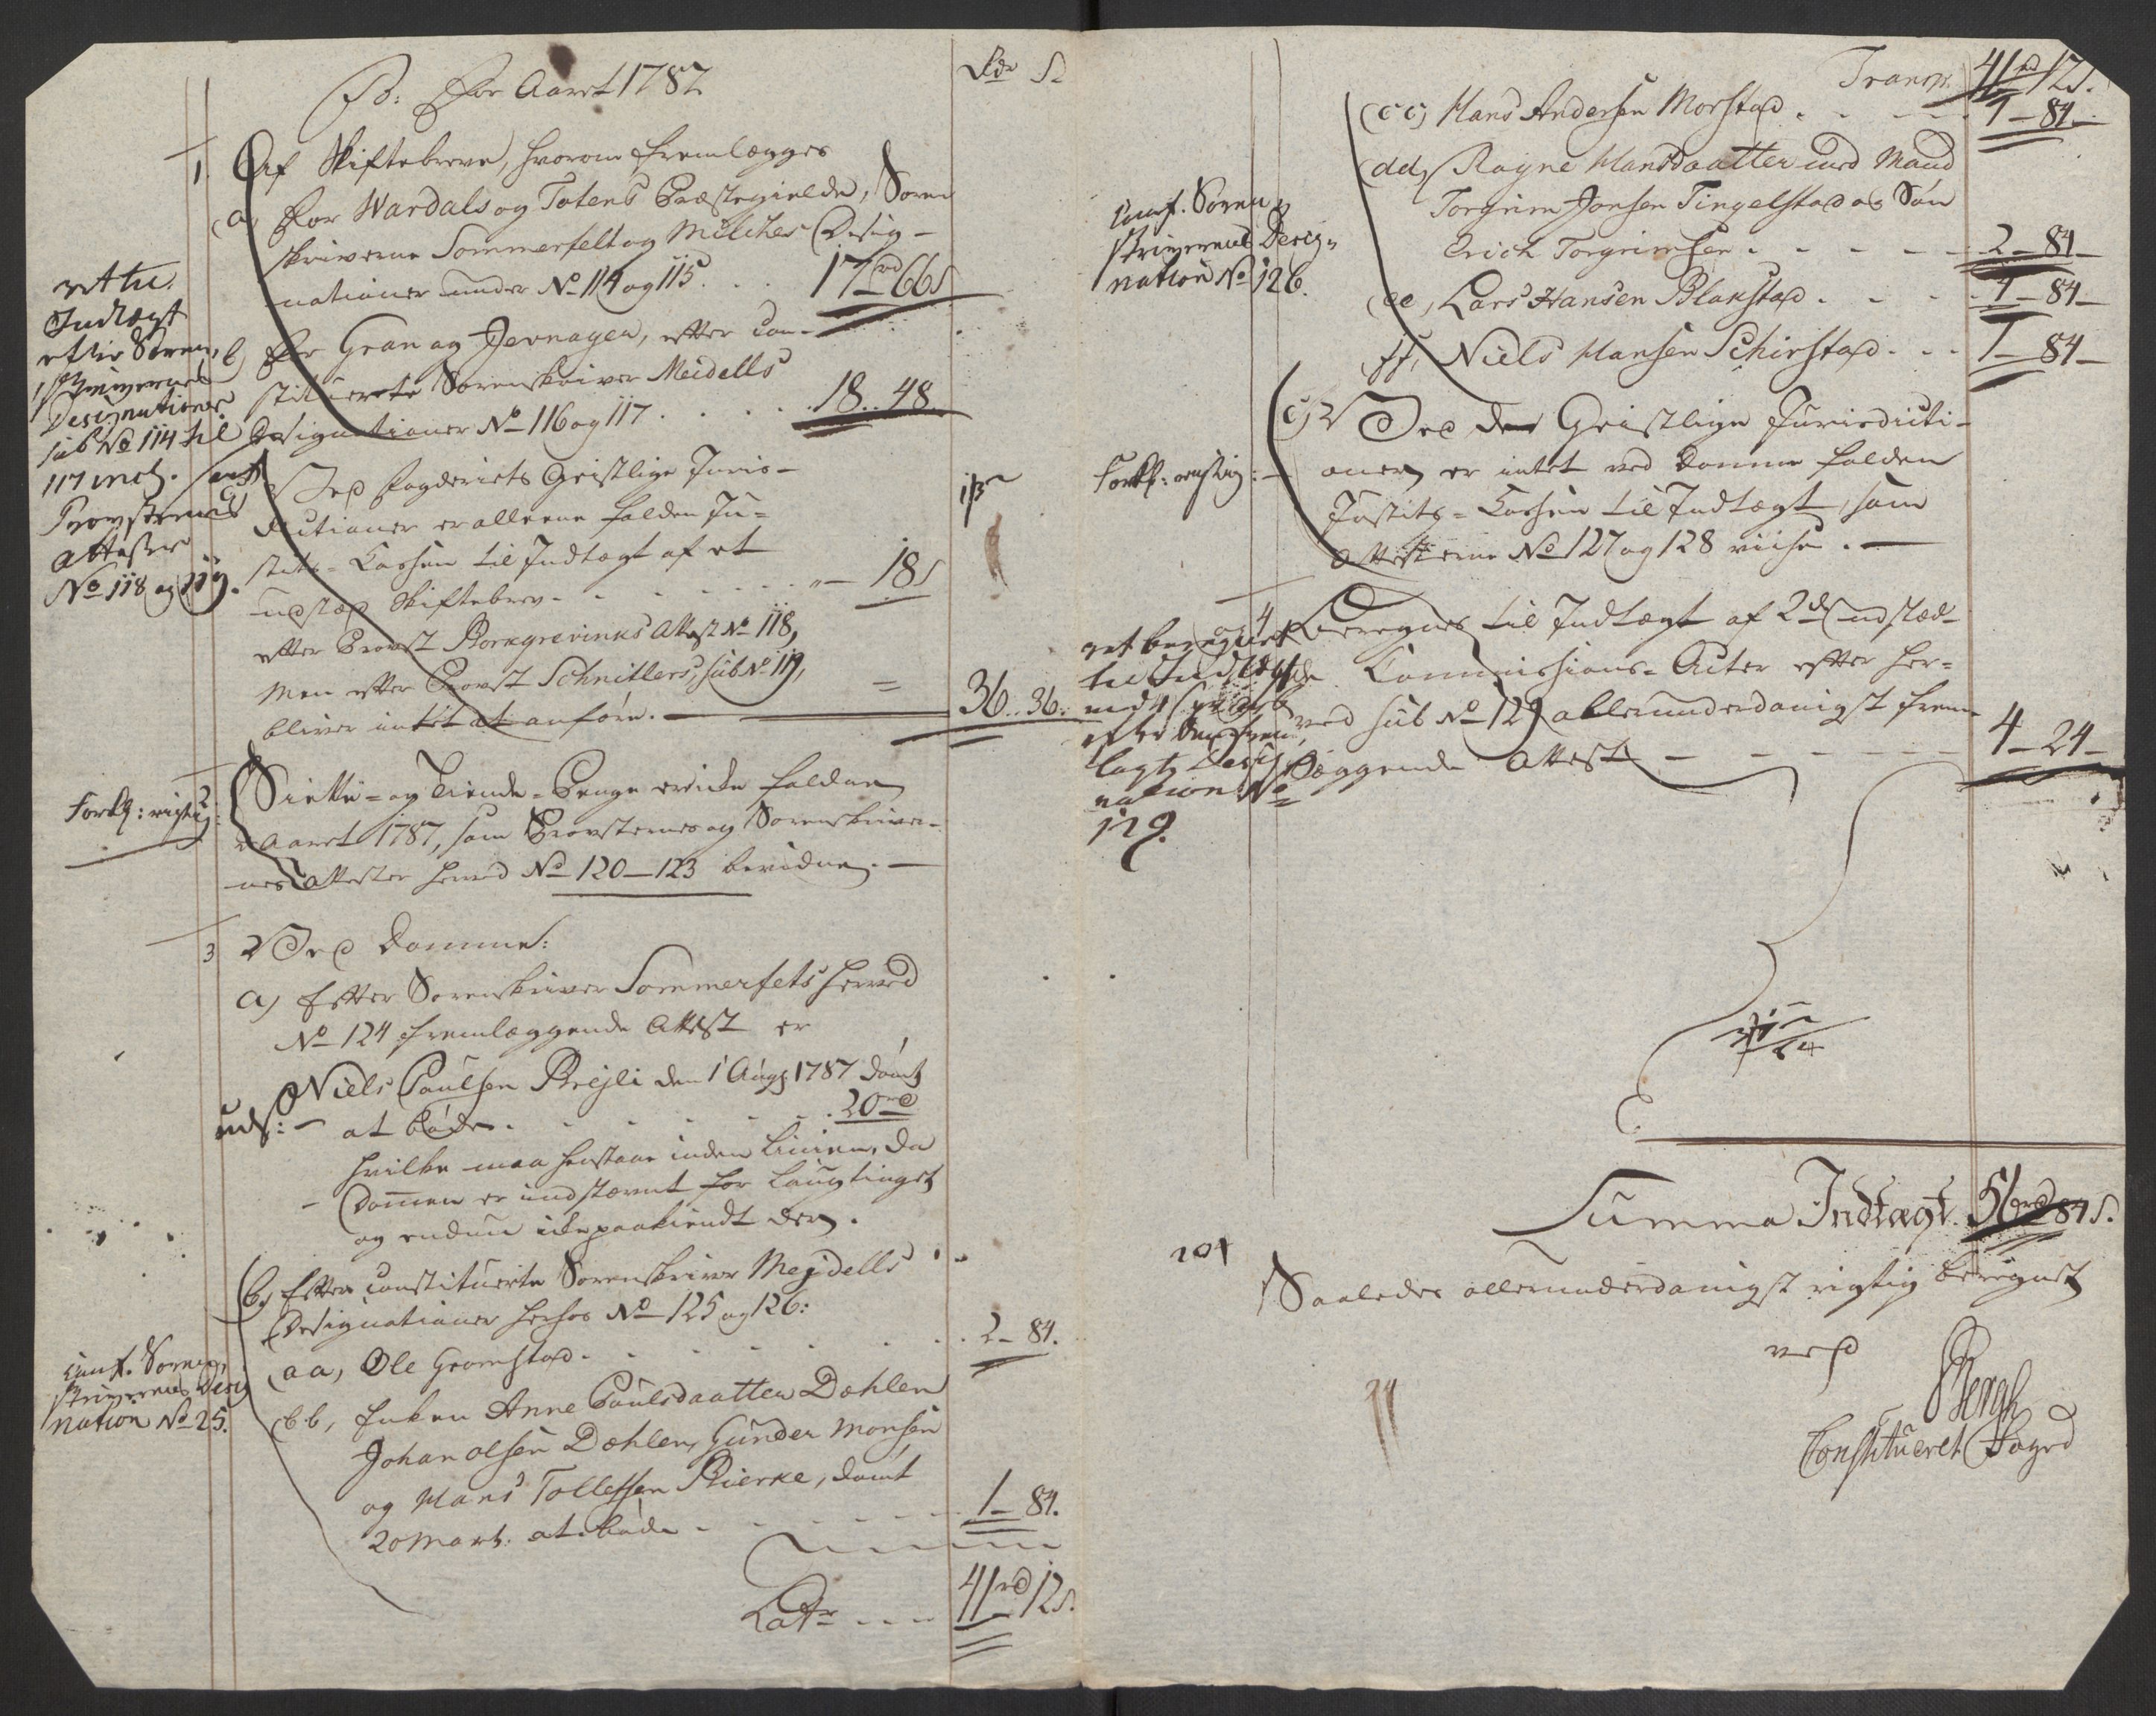 B: For Aaret 1787
Rdr S.
1. Af Skiftebreve, hvorom fremlægges
a, For Wardals og Totens Præstegielde, Soren
skriverne Sommerfelt og Milches Desig-
nationer under No 114 og 115 . . . 17 rd 66 s
b, For Gran og Jevnager, efter con-
stituerede Sorenskriver Meidells
Designationer No 116 og 117 . . . . 18 .. 48.
c, Ved Fogderiets Geistlige Juris-
dictioner er alleene falden Ju-
stits-Cassen til Indtægt af et
udstæd Skiftebrev . . . . . „ — 18 s
efter Provst Borkgrevinks Attest No 118,
Men efter Provst Schnitlers, sub No 119,
bliver intet at anføre. — 36 .. 36.
rettel.
Indtægt
efter Soren,
skrivernes
Designationer
sub No 114 til
117 incl. samt
Provsternes
Attester
No 118 og 119.
2. Siette- og Tiende-Penge er icke falden
i Aaret 1787, som Provsternes og Sorenskriver-
nes Attester herved No 120 — 123 bevidner. —
Forkl: rigtig:
3 Ved Domme:
a) Efter Sorenskriver Sommerfets herved
No 124 fremlæggende Attest er
Niels Poulsen Brejli den 1 Aug: 1787 dømt
uds: — at bøde . . . . . 20 rd
hvilke maa henstaae inden Linien, da
— Dommen er indstævnt for Laugtinget
og endnu icke paakiendt der.
b, Efter constituerte Sorenskriver Mejdells
Designationer herhos No 125 og 126:
aa, Ole Gromstad . . . . . . 2 — 84.
bb, Enken Anne Poulsdaatter Dæhlen
Johan Olsen Dæhlen, Gunder Monsen
og Hans Tollefsen Bierke, dømt
20 Mart: at bøde . . . . . 1 — 84.
conf. Soren,
skrivernes Desig
nation No 25.
Latr . . . . 41 rd 12 s.
Transp. 41 rd 12 s.
cc) Hans Andersen Morstad . . . . 1 — 84.
dd, Ragne Hansdaatter med Mand
Torgrim Jonsen Tingelstad og Søn
Erich Torgrimsen . . . . . 2 — 84 —
ee, Lars Hansen Blakstad . . . . 1 — 84 —
ff, Niels Hansen Schirstad . . . 1 — 84 —
conf. Soren,
skrivernes Desig,
nation No 126.
c, Ved den Geistlige Jurisdicti-
oner er intet ved Domme falden
Justits-Cassen til Indtægt, som
Attesterne No 127 og 128 viise. —
Forkl: rigtig: —
4 Beregnes til Indtægt af 2de udstæd-
te Commissions-Acter efter her-
ved sub No 129 allerunderdanigst frem-
læggende Attest — — — — 4 — 24 —
ret beregnet
til Indtægt
med
efter den frem,
lagte Desig
nation No
129.
Summa Indtægt. 56 rd 84 s.
Saaledes allerunderdanigst rigtig beregnet
ved
Bergh
Constitueret Foged